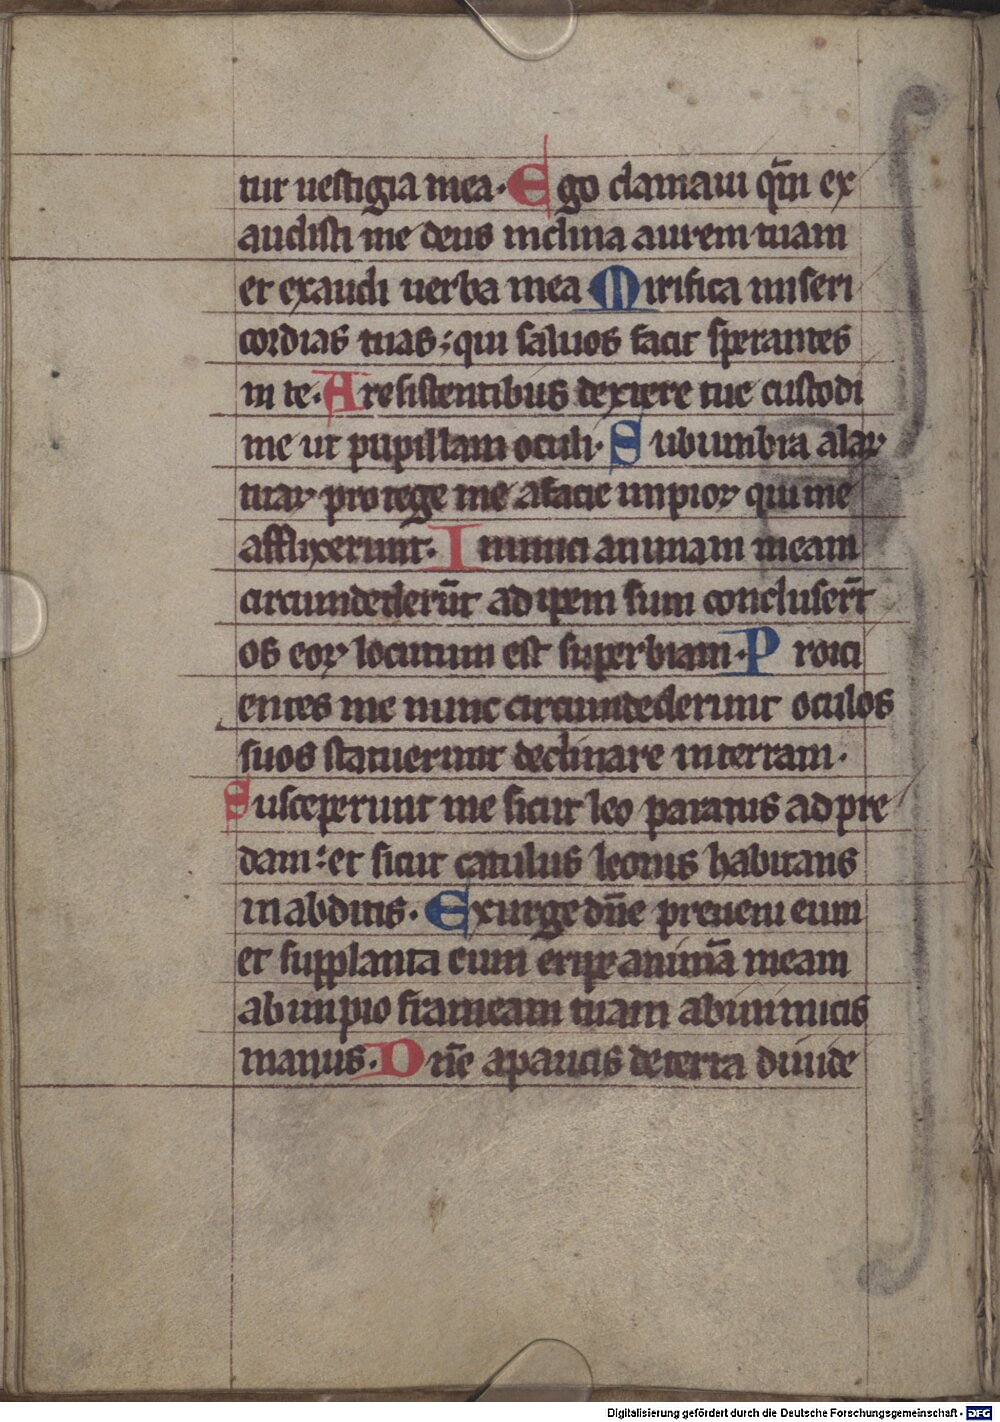 tur uestigia mea. Ego clamaui qm̄ ex
audisti me deus inclina aurem tuam
et exaudi uerba mea Mirifica miseri
cordias tuas: qui saluos facit sperantes
in te. A resistentibus dextere tue custodi
me ut pupillam oculi. Sub umbra alaꝝ
tuaꝝ protege me a facie impioꝝ qui me
afflixerunt. Inimici animam meam
circumdederūt adipem suum concluserūt
os eoꝝ locutum est superbiam. Proici
entes me nunc circumdederunt oculos
suos statuerunt declinare in terram.
Susceperunt me sicut leo paratus ad pre
dam: et sicut catulus leonis habitans
in abditis. Exurge dn̄e preueni eum
et supplanta eum eripe animā meam
ab impio frameam tuam ab inimicis
manus. Dn̄e a paucis de terra diuide
Digitalisierung gefördert durch die Deutsche Forschungsgemeinschaft - DFG